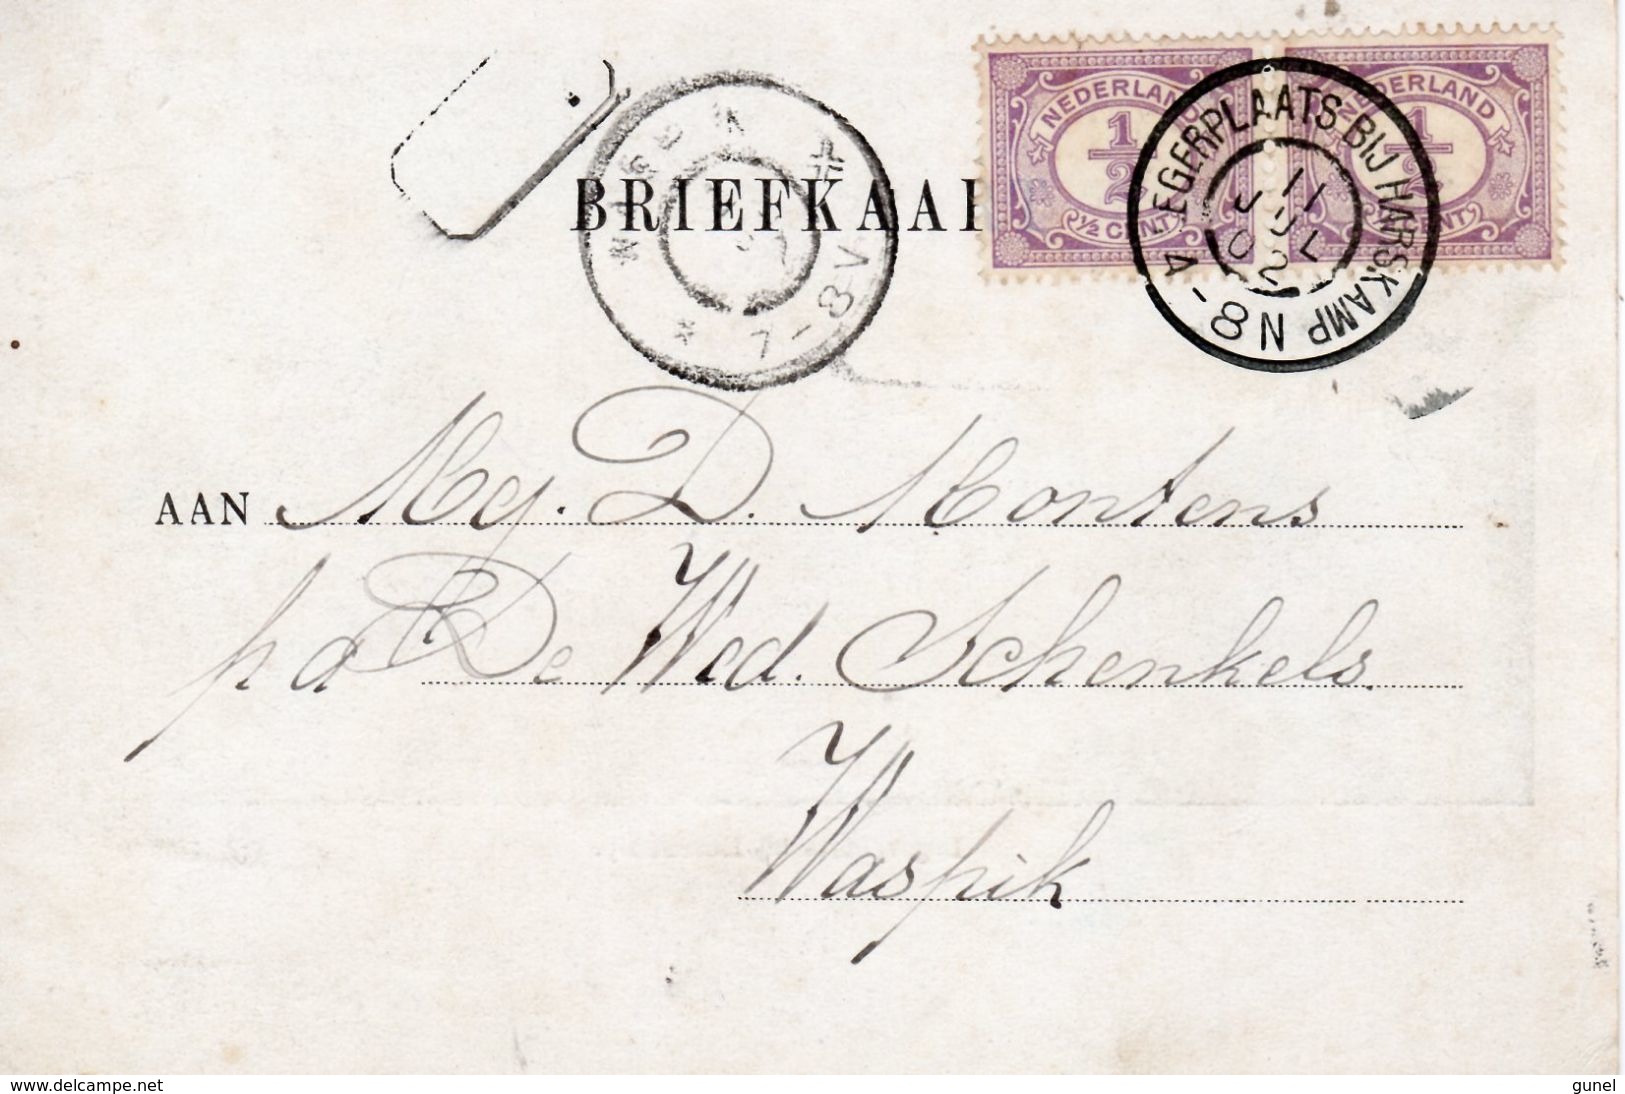 NEDERLAND
1/2
½ CENT
NEDERLAND
1/2
CENT
LEGERPLAATS BIJ HARSKAMP
11 JUL 02
8-N
7-8V
BRIEFKAA
AAN Mej. D. Montens
p a De Wed. Schenkels.
Waspik
www.delcampe.net
gunel